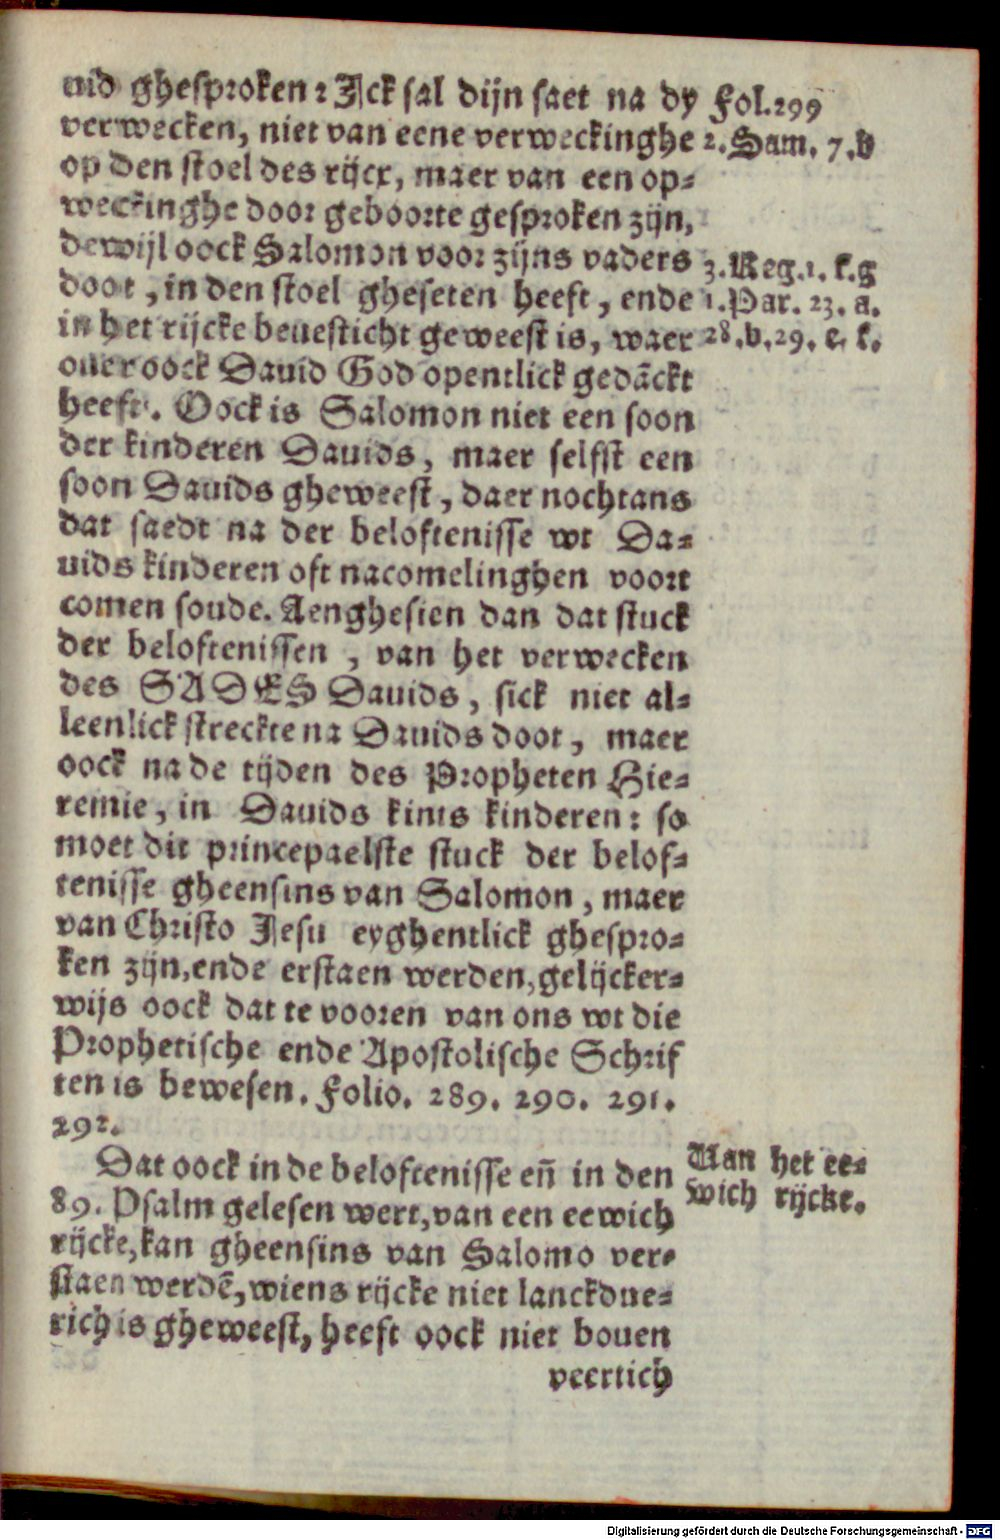 uid ghesproken: Ick sal dijn saet na dy
verwecken, niet van eene verweckinghe
op den stoel des rijcx, maer van een op-
weckinghe door geboorte gesproken zijn,
dewijl oock Salomon voor zijns vaders
doot, in den stoel gheseten heeft, ende
in het rijcke beuesticht geweest is, waer
ouer oock Dauid God opentlick gedãckt
heeft. Oock is Salomon niet een soon
der kinderen Dauids, maer selfst een
soon Dauids gheweest, daer nochtans
dat saedt na der beloftenisse wt Da-
uids kinderen oft nacomelinghen voort
comen soude. Aenghesien dan dat stuck
der beloftenissen, van het verwecken
des SADES Dauids, sick niet al-
leenlick streckte na Dauids doot, maer
oock na de tijden des Propheten Hie-
remie, in Dauids kints kinderen: so
moet dit princepaelste stuck der belof-
tenisse gheensins van Salomon, maer
van Christo Jesu eyghentlick ghespro-
ken zijn, ende erstaen werden, gelijcker-
wijs oock dat te vooren van ons wt die
Prophetische ende Apostolische Schrif
ten is bewesen. Folio. 289. 290. 291.
292.
Dat oock in de beloftenisse eñ in den
89. Psalm gelesen wert, van een eewich
rijcke, kan gheensins van Salomo ver-
staen werdẽ, wiens rijcke niet lanckdue-
rich is gheweest, heeft oock niet bouen
veertich
Fol. 299
2. Sam. 7. b
3. Reg. 1. f. g
1. Par. 23. a.
28. b. 29. c. f.
Van het ee-
wich rijcke.
Digitalisierung gefördert durch die Deutsche Forschungsgemeinschaft - DFG